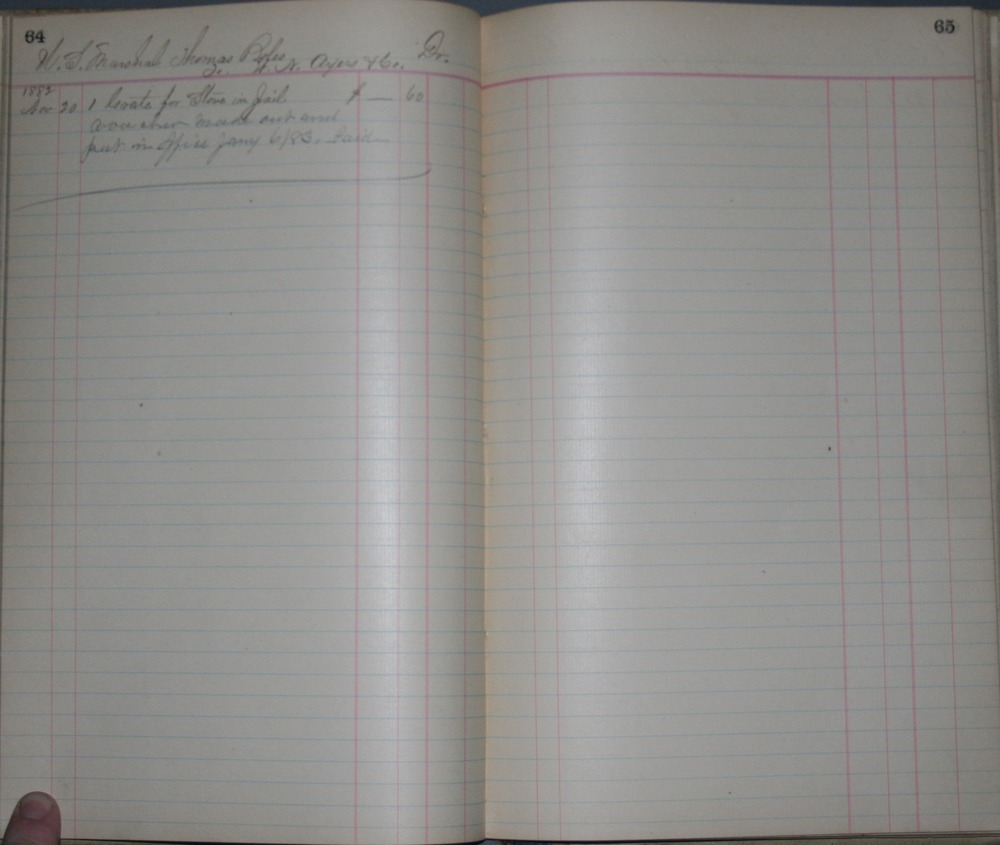 64
U.S. Marshal Thomas Dr.
To W. N. Ayers & Co.
1882
Nov 20 1 Grate for Stove in Jail $ — 60
voucher made out and
put in office Jany 6/83. Paid
65